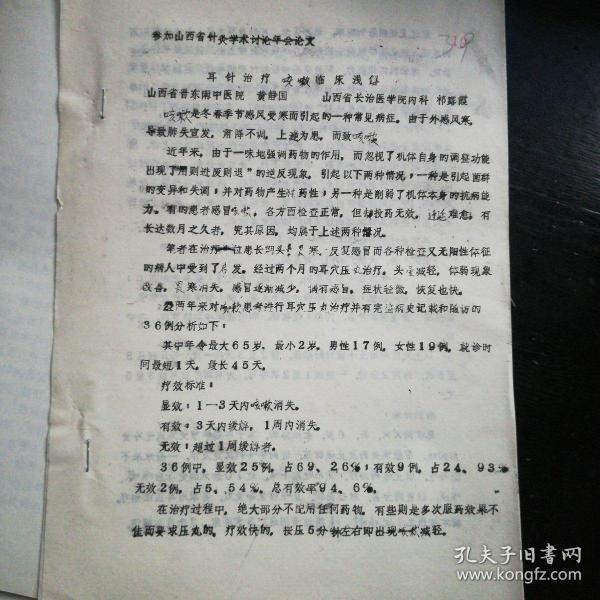 参加山西省针灸学术讨论年会论文
耳针治疗咳嗽临床浅得
山西省晋东南中医院 黄静国 山西省长治医学院内科 祁彩霞
咳嗽是冬春季节感风受寒而引起的一种常见病症。由于外感风寒，
导致肺失宣发，肃降不调，上逆为患，而致咳嗽
近年来，由于一味地强调药物的作用，而忽视了机体自身的调整功能
出现了“用则进废则退”的逆反现象，引起以下两种情况：一种是引起菌群
的变异和失调；并对药物产生抗药性；另一种是削弱了机体本身的抗病能
力。有的患者感冒咳嗽，各方面检查正常，但却投药无效，迁延难愈，有
长达数月之久者，究其原因，均属于上述两种情况。
笔者在治疗一位患长期头 畏寒、反复感冒而各种检查又无阳性体征
的病人中受到了启发。经过两个月的耳穴压丸治疗，头 减轻，体弱现象
改善，畏寒消失，感冒逐渐减少，偶有感冒，症状轻微，恢复也快。
近两年来对咳嗽患者进行耳穴压丸治疗并有完整病史记载和随访的
36例分析如下：
其中年令最大65岁，最小2岁，男性17例，女性19例，就诊时
间最短1天，最长45天。
疗效标准：
显效：1—3天内咳嗽消失。
有效：3天内缓解，1周内消失。
无效：超过1周缓解者。
36例中，显效25例，占69、26%；有效9例，占24、93%
无效2例，占5、54%，总有效率94、6%。
在治疗过程中，绝大部分不配用任何药物，有些则是多次服药效果不
佳而要求压丸的，疗效快的，按压5分钟左右即出现咳嗽减轻。
孔夫子旧书网
www.kongfz.com